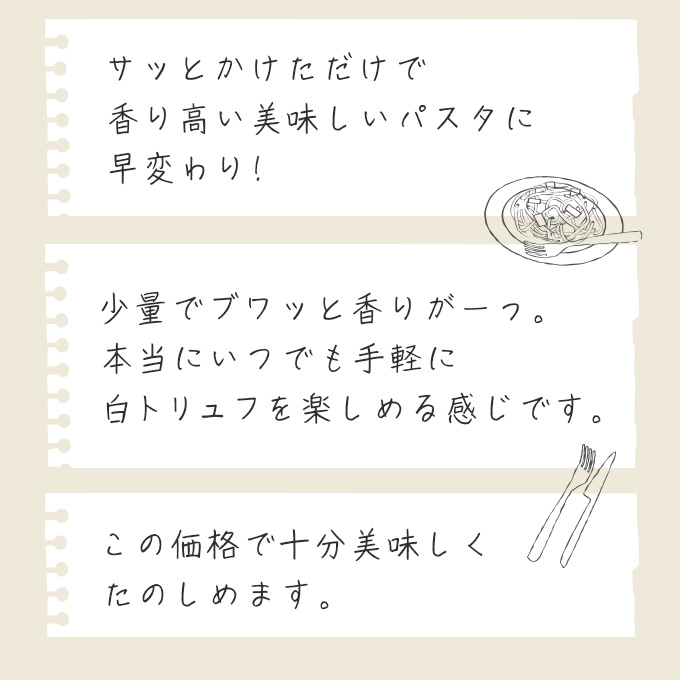 サッとかけただけで
香り高い美味しいパスタに
早変わり!
少量でブワッと香りがーっ。
本当にいつでも手軽に
白トリュフを楽しめる感じです。
この価格で十分美味しく
たのしめます。